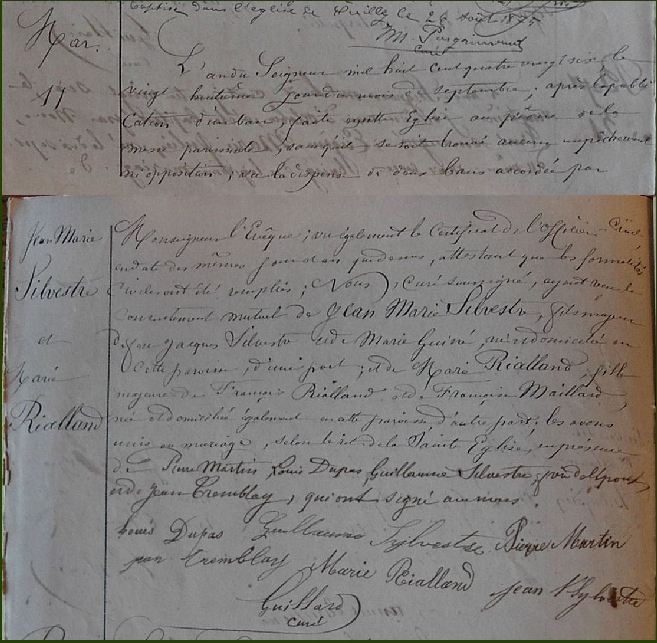 Baptisé dans l'église de Juillé le 26 Août 1875
M. Pasquinoud
curé
Mar.
17
L'an du Seigneur mil huit cent quatre vingt six le
vingt huitième jour du mois de septembre, après la publi
cation d'un ban, faite en cette Eglise au prône de la
messe paroissiale, sans qu'il se soit trouvé aucun empêchement
ni opposition, vu la dispense de deux bans accordée par
Jean Marie
Silvestre
et
Marie
Rialland
Monseigneur l'Evêque; vu également le certificat de l'officier civil
en date des mêmes jour et an que dessus, attestant que les formalités
civiles ont été remplies; Nous, curé soussigné, ayant reçu le
consentement mutuel de Jean Marie Silvestre, fils majeur
de feu Jacques Silvestre et de Marie né et domicilié en
cette paroisse, d'une part; et de Marie Rialland, fille
majeure de François Rialland et de Françoise Maillard,
née et domiciliée également en cette paroisse d'autre part; les avons
unis en mariage, selon le rit de la Sainte Eglise, en présence
de Pierre Martin, Louis Dupas, Guillaume Silvestre,
et de Jean Tremblay, qui ont signé avec nous.
Louis Dupas Guillaume Sylvestre Pierre Martin
jean tremblay Marie Rialland jean Sylvestre
Guillard
curé